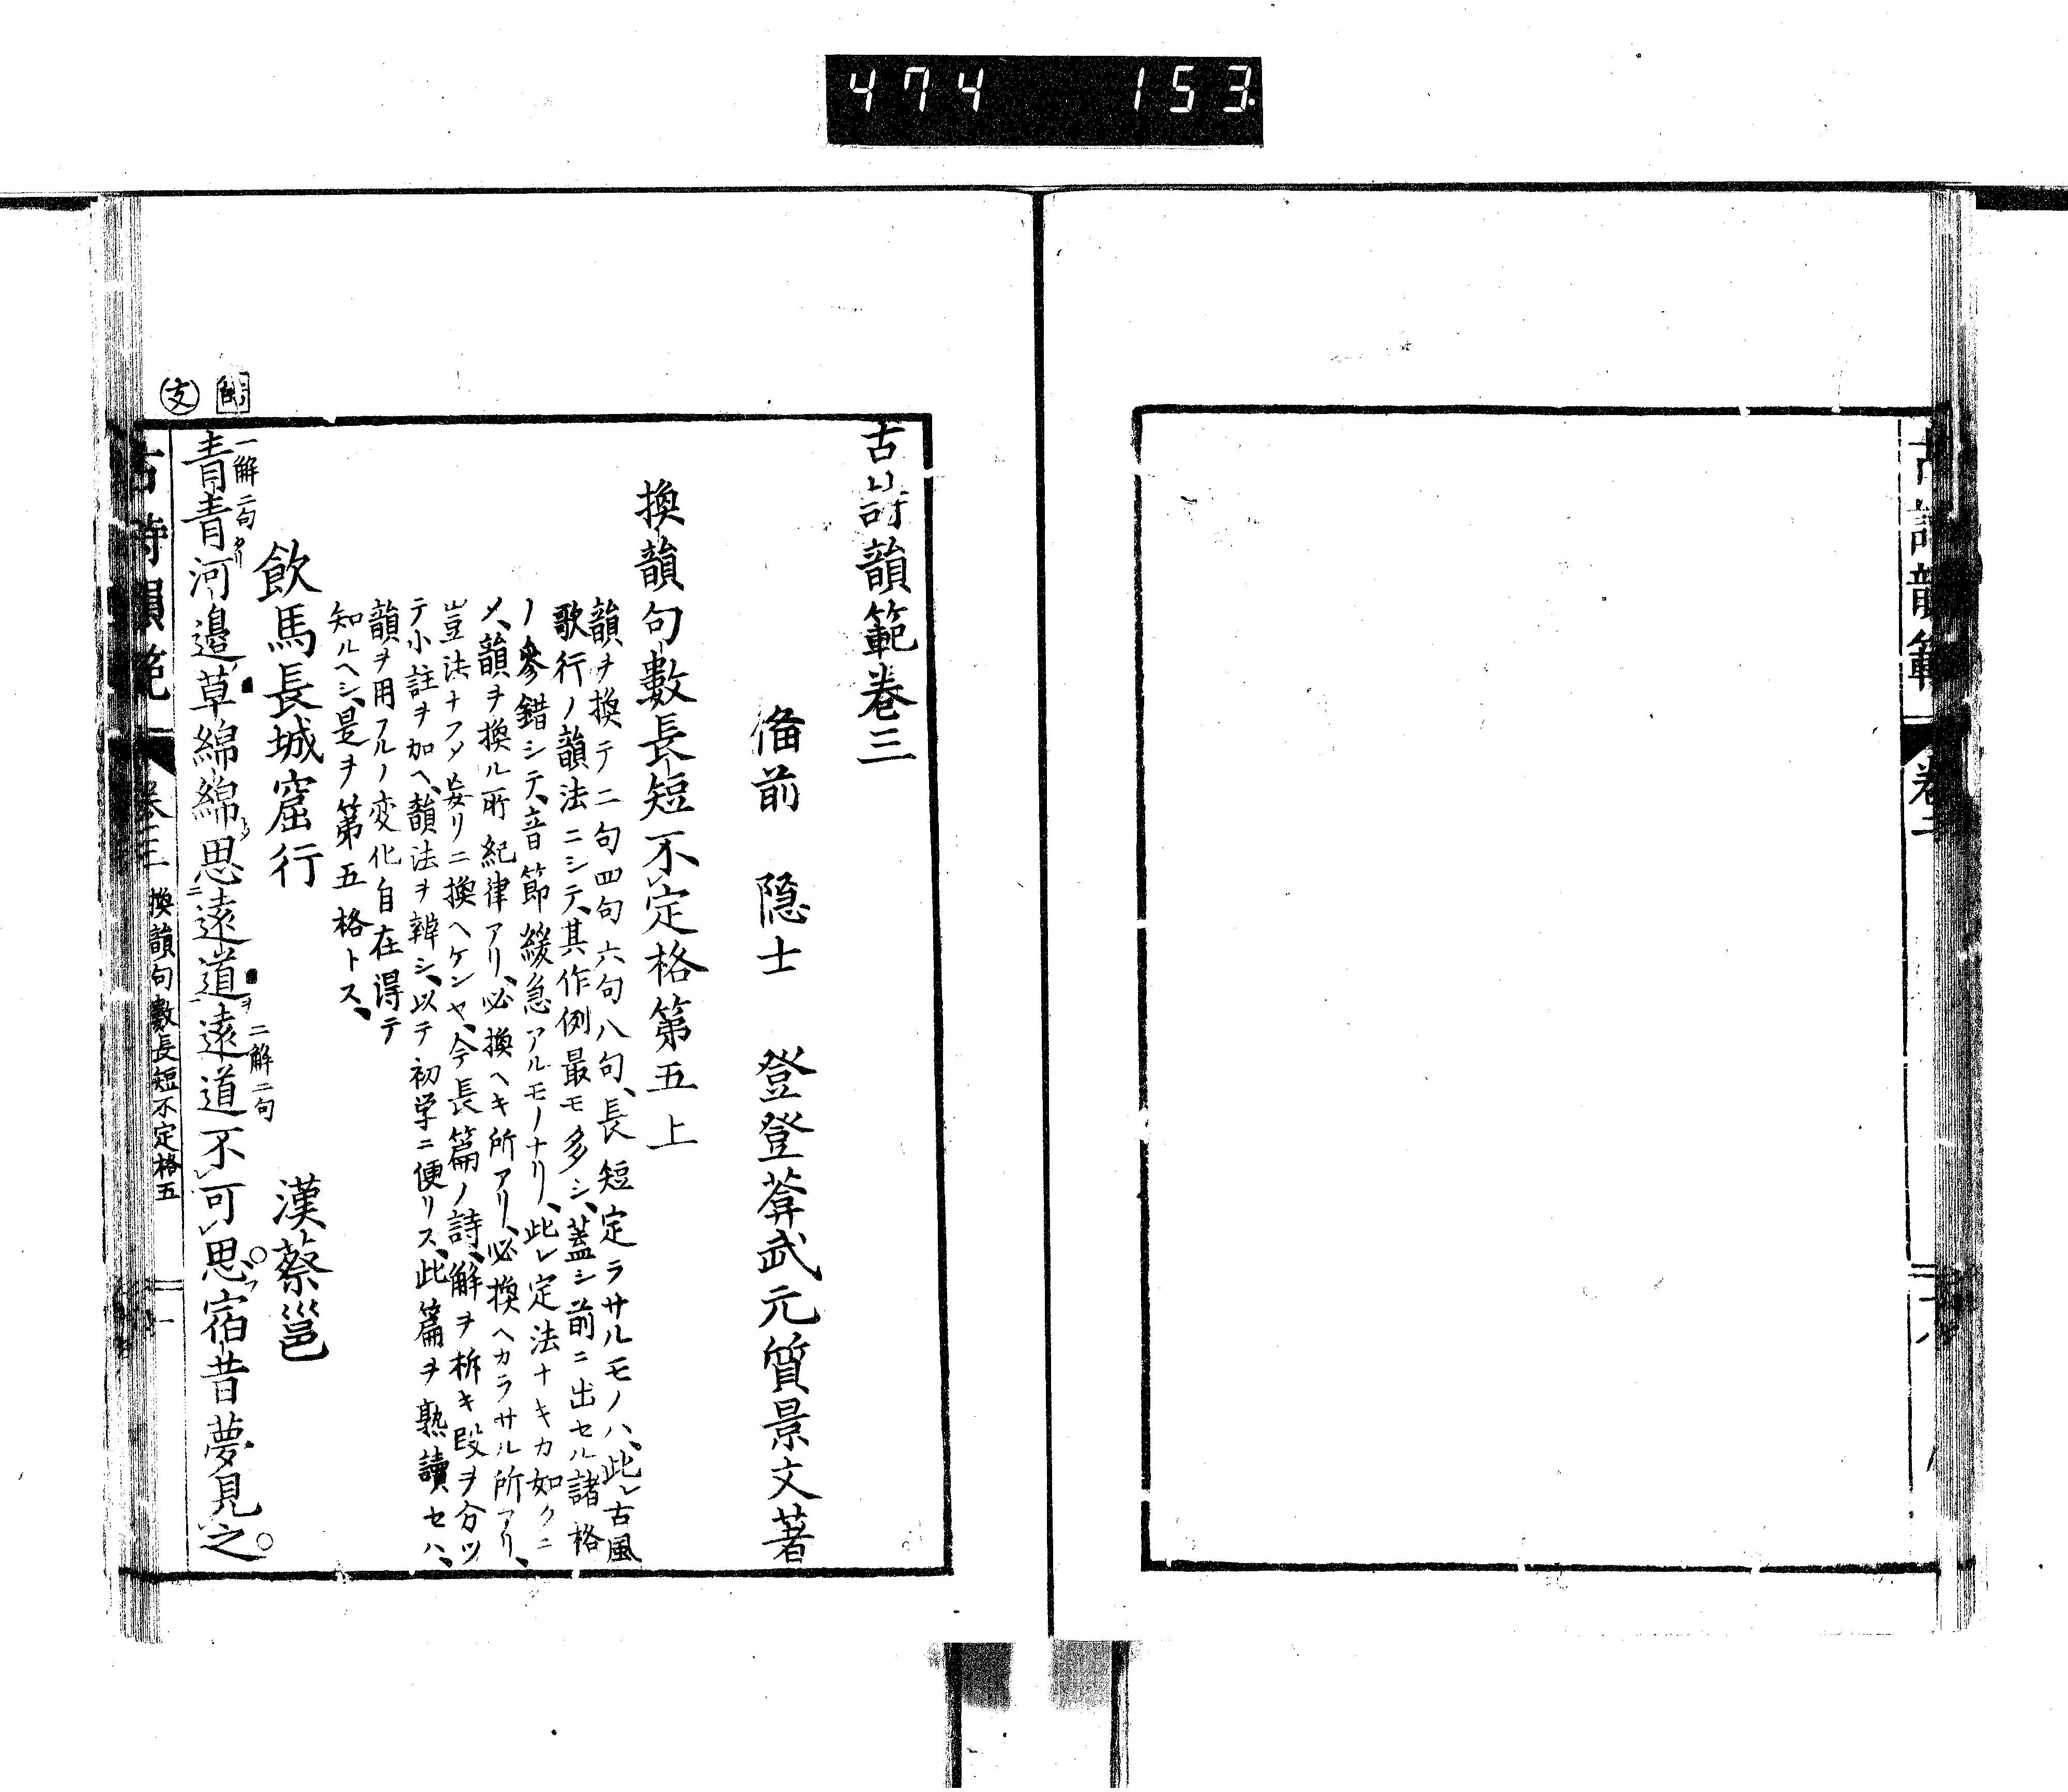 474 153
古詩韻範
卷二
古詩韻範卷三
備前 隱士 登登葊武元質景文著
換韻句數長短不定格第五上
韻ヲ換テ二句四句六句八句、長短定ラサルモノハ、此レ古風
歌行ノ韻法ニシテ、其作例最モ多シ、蓋シ前ニ出セル諸格
ノ參錯シテ、音節緩急アルモノナリ、此レ定法ナキカ如クニ
〆、韻ヲ換ル所紀律アリ、必換ヘキ所アリ、必換ヘカラサル所アリ、
豈法ナフ〆妄リニ換ヘケンヤ、今長篇ノ詩、解ヲ析キ段ヲ分ツ
テ小註ヲ加ヘ、韻法ヲ辨シ、以テ初学ニ便リス、此篇ヲ熟讀セハ、
韻ヲ用フルノ変化自在得テ
知ルヘシ、是ヲ第五格トス、
飲馬長城窟行 漢蔡邕
支
一解二句
青青河邉草綿綿思遠道
二解二句
遠道不可思宿昔夢見之
古詩韻範 卷三 換韻句數長短不定格五 一